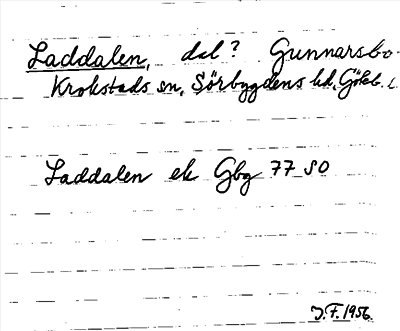 Laddalen, dal? Gunnarsbo
Krokstads sn, Sörbygdens hd, Göteb. l
Laddalen ek Gbg 77 SO
J.F. 1956.